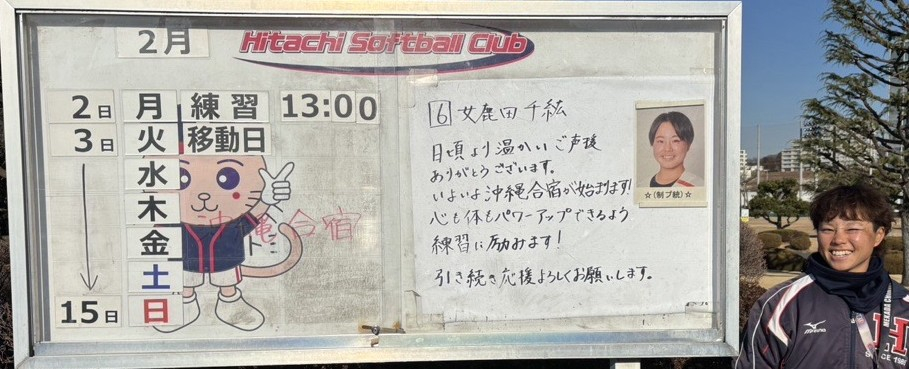 2月
Hitachi Softball Club
2日 月 練習 13:00
3日 火 移動日
水
木
金
土
15日 日
沖縄合宿
6 女鹿田千紘
日頃より温かいご声援
ありがとうございます。
いよいよ沖縄合宿が始まります!
心も体もパワーアップできるよう
練習に励みます!
引き続き応援よろしくお願いします。
☆(制ブ統)☆
mizuno
H